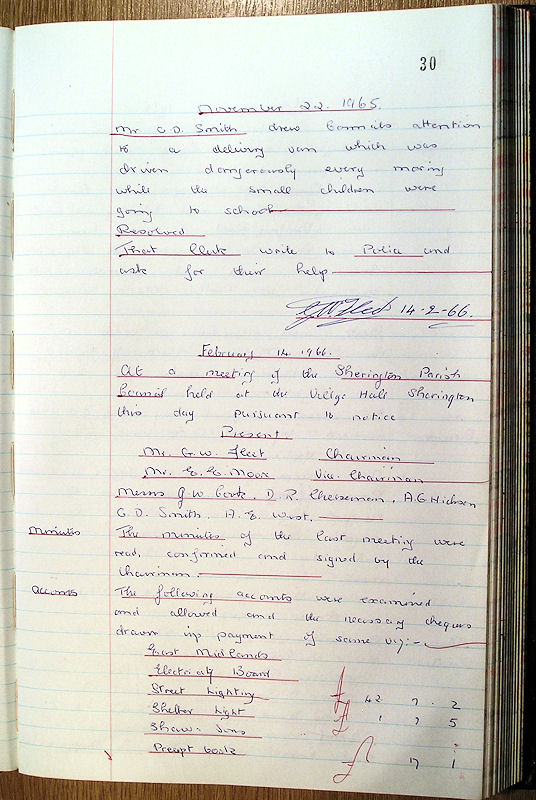 30
November 22. 1965.
Mr C.D. Smith drew Councils attention
to a delivery van which was
driven dangerously every morning
while the small children were
going to school
Resolved
That Clerk write to Police and
ask for their help
14-2-66.
February 14. 1966.
At a meeting of the Sherington Parish
Council held at the Village Hall Sherington
this day pursuant to notice
Present.
Mr. G.W. Fleet Chairman
Mr. E.C. Moore Vice. Chairman
Messrs J.W. Cook, D.R. Cheeseman, A.G. Hickson
C.D. Smith. A.E. West.
Minutes The minutes of the last meeting were
read, confirmed and signed by the
Chairman.
Accounts The following accounts were examined
and allowed and the necessary cheques
drawn in payment of same viz:-
East Midlands
Electricity Board
Street Lighting £ 42 7. 2
Shelter Light £ 1 7 5
Shaw & Sons
Precept book £ 17 1